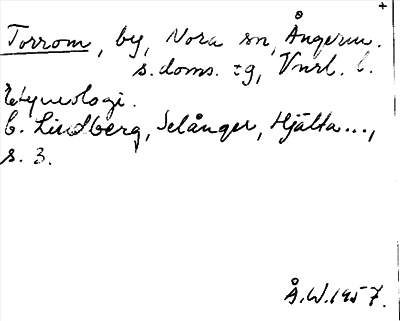 +
Torrom, by, Nora sn, Ångerm.
s. doms. tg, Vnrl. l.
Etymologi.
C. Lindberg, Selånger, Hjälta...,
s. 3.
Å.W.1957.